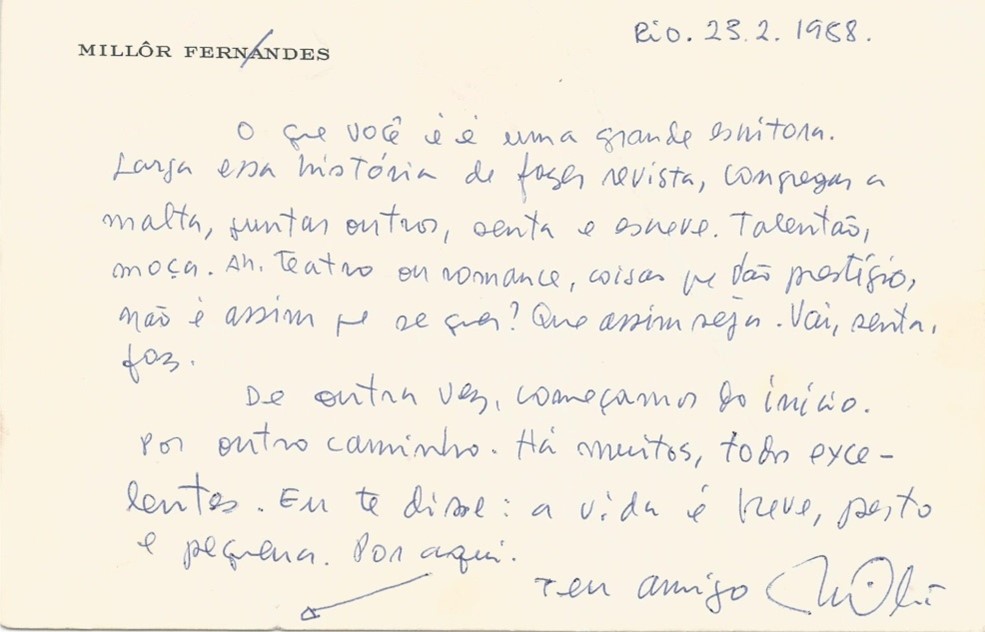 MILLÔR FERNANDES
Rio. 23.2.1988.
O que você é é uma grande escritora.
Larga essa história de fazer revista, congregar a
malta, juntar outros, senta e escreve. Talentão,
moça. Ah. Teatro ou romance, coisas que dão prestígio,
não é assim que se quer? Que assim seja. Vai, senta,
faz.
De outra vez, começamos do início.
Por outro caminho. Há muitos, todos exce-
lentes. Eu te disse: a vida é breve,
e pequena. Por aqui.
Teu amigo Millôr